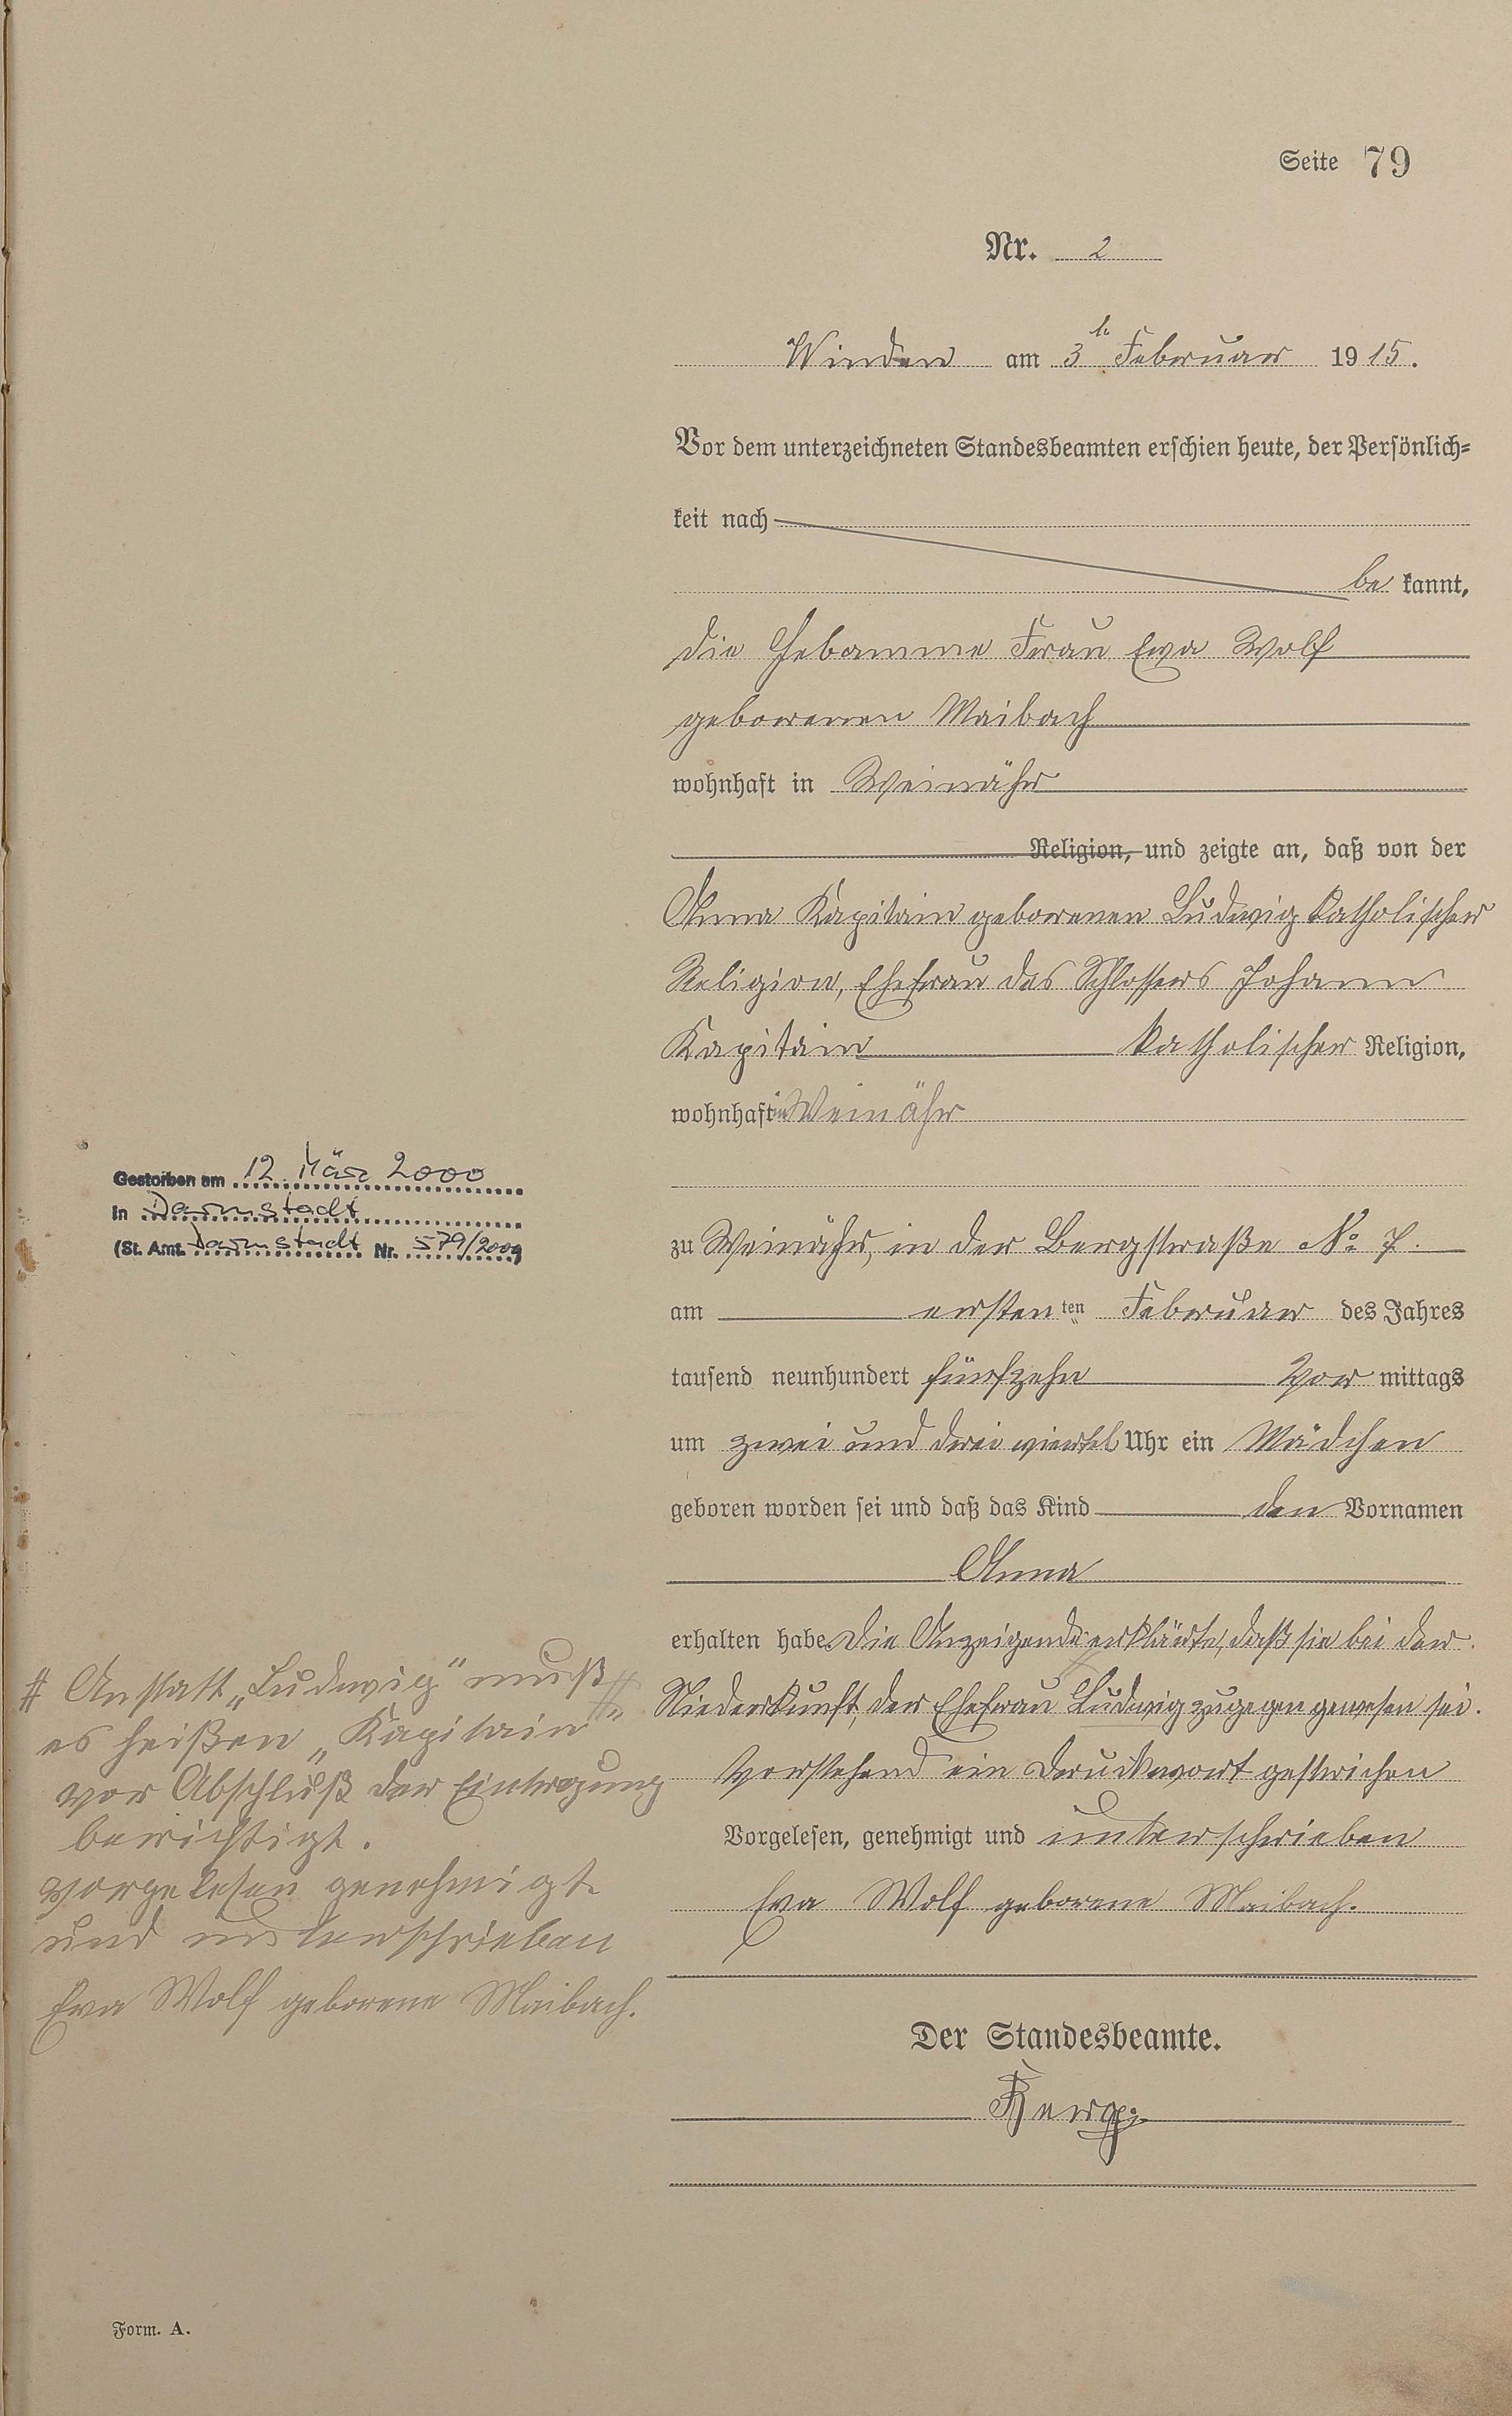 Seite 79
Nr. 2
Winden am 3ten Februar 1915.
Vor dem unterzeichneten Standesbeamten erschien heute, der Persönlich=
keit nach
be kannt,
die Hebamme Frau Eva Wolf
geborenen Maibach
wohnhaft in Weinähr
Religion, und zeigte an, daß von der
Anna Kapitain geborenen Ludwig katholischer
Religion, Ehefrau des Schlossers Johann
Kapitain katholischer Religion,
wohnhaft in Weinähr
zu Weinähr, in der Bergstraße No 7.
am ersten ten Februar des Jahres
tausend neunhundert fünfzehn Vor mittags
um zwei und drei viertel Uhr ein Mädchen
geboren worden sei und daß das Kind den Vornamen
Anna
erhalten habe. Die Anzeigende erklärte, daß sie bei der
Niederkunft, der Ehefrau Ludwig zugegen gewesen sei.
Vorstehend ein Druckwort gestrichen
Vorgelesen, genehmigt und unterschrieben
Eva Wolf geborene Maibach.
Der Standesbeamte.
Gestorben am 12. März 2000
in Darmstadt
(St. Amt Darmstadt Nr. 579/2000)
# Anstatt „Ludwig" muß
es heißen „Kapitain"
vor Abschluß der Eintragung
berichtigt.
Vorgelesen genehmigt
und unterschrieben
Eva Wolf geborene Maibach.
Form. A.